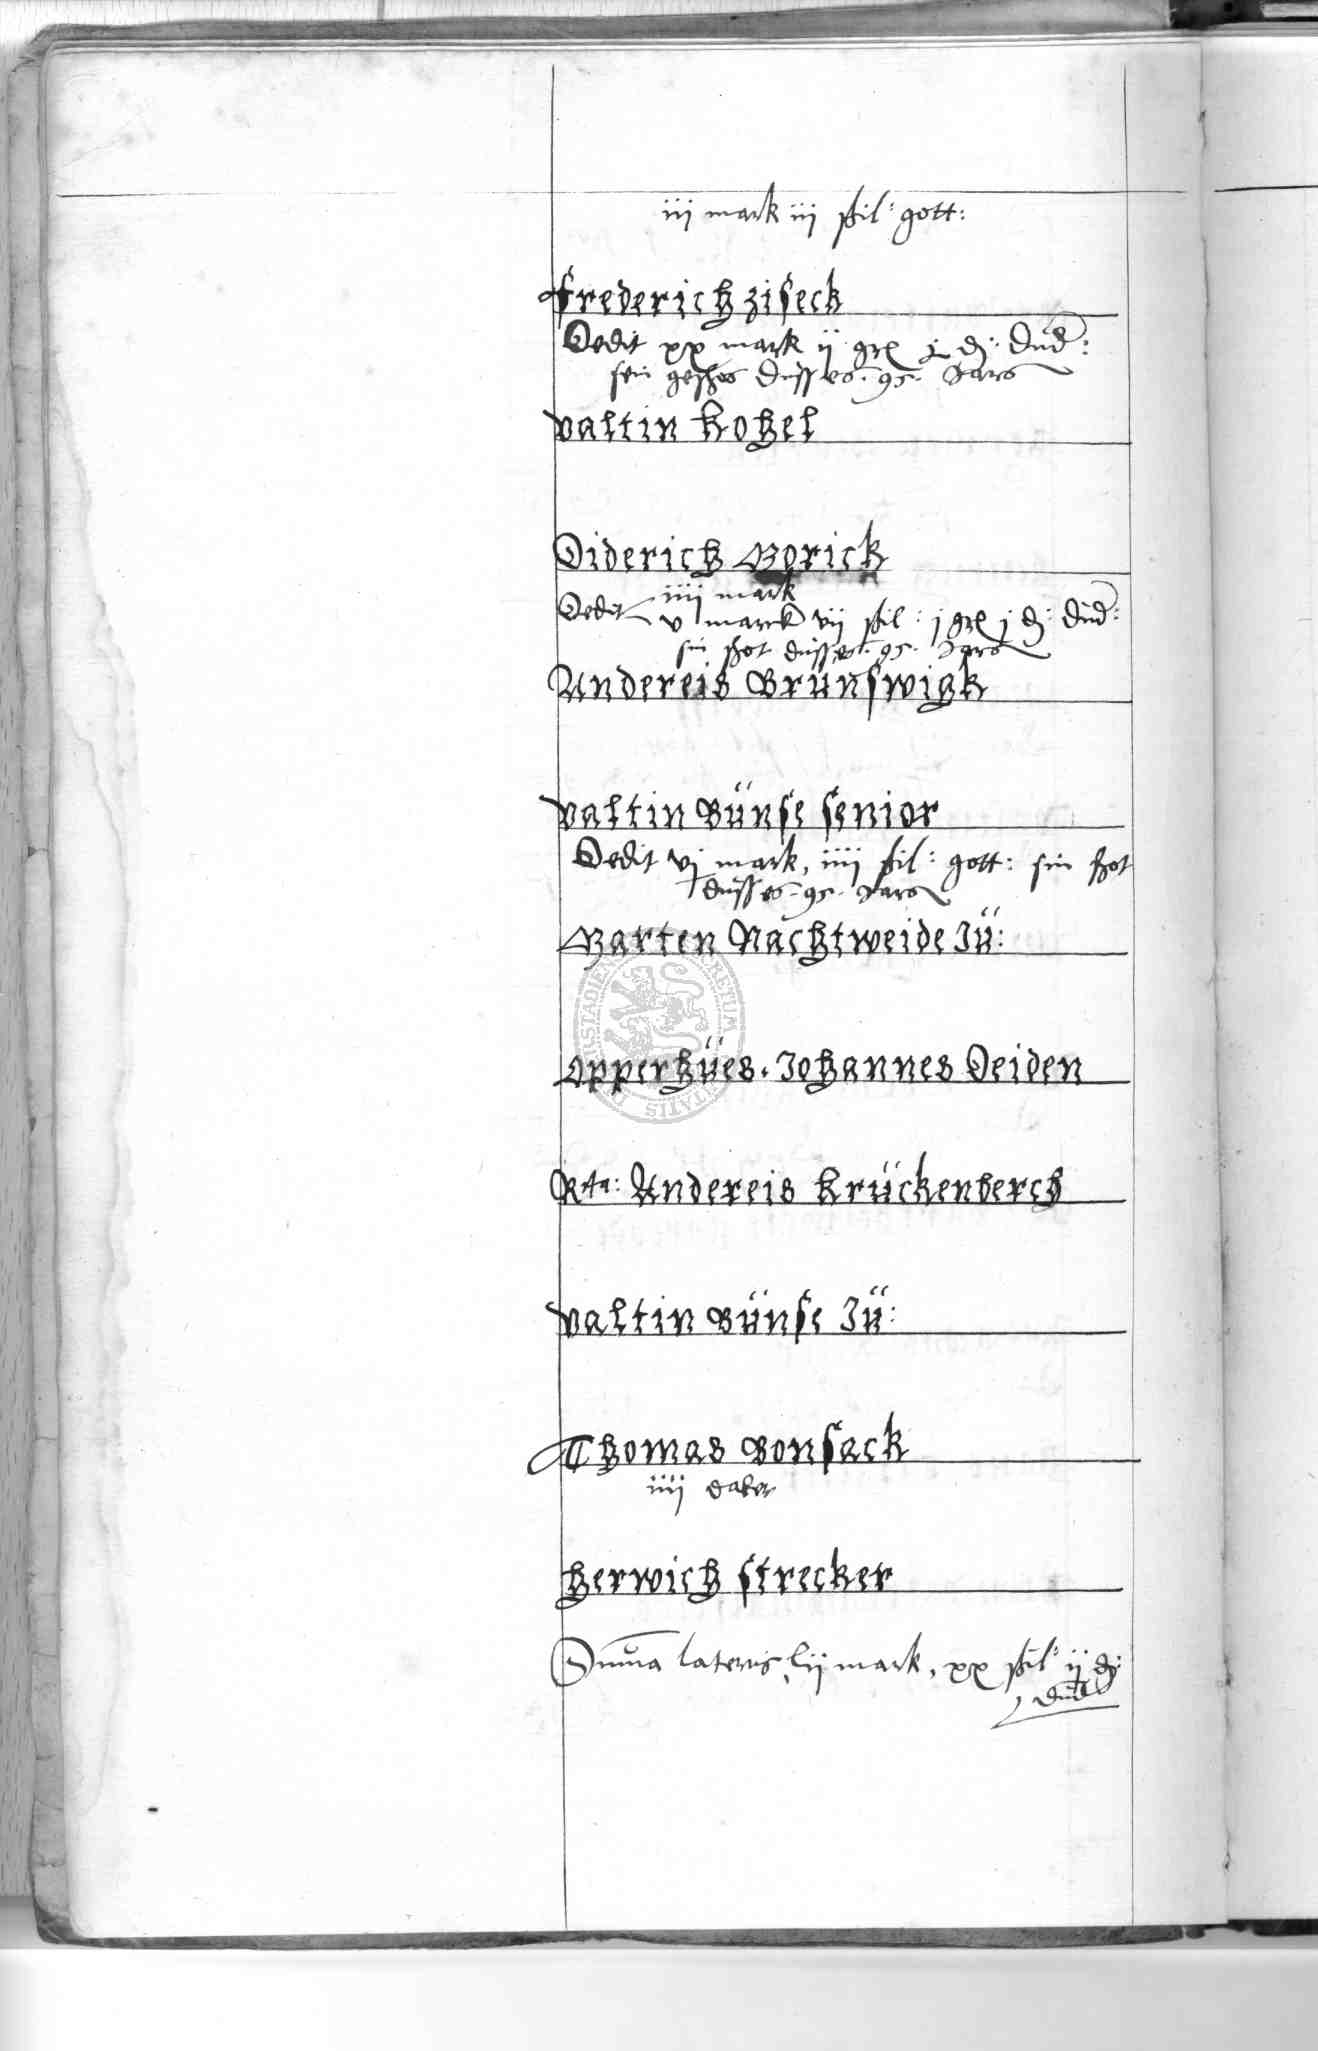 iij mark iij ßil: gott:
Frederich Ziseck
Dedit xx mark ij grl j d: Dud:
sin geschos dusses. 95. Jars
Valtin Kohel
Diderich Morick
iiij mark
Dedit v marck vij ßil: j grl j d: Dud:
sin schot dusses. 95. Jars
Andereis Brünswigk
Valtin Bünse senior
Dedit vj mark, iiij ßil: gott: sin schot
dusses. 95. Jars
Marten Nachtweide Jü:
Opperhües. Johannes Deiden
Rta: Andereis Krückenberch
Valtin Bünse Jü:
Thomas Bonsack
iiij daler
Herwich Strecker
Suma lateris, lij mark, xx ßil: ij d:
dud